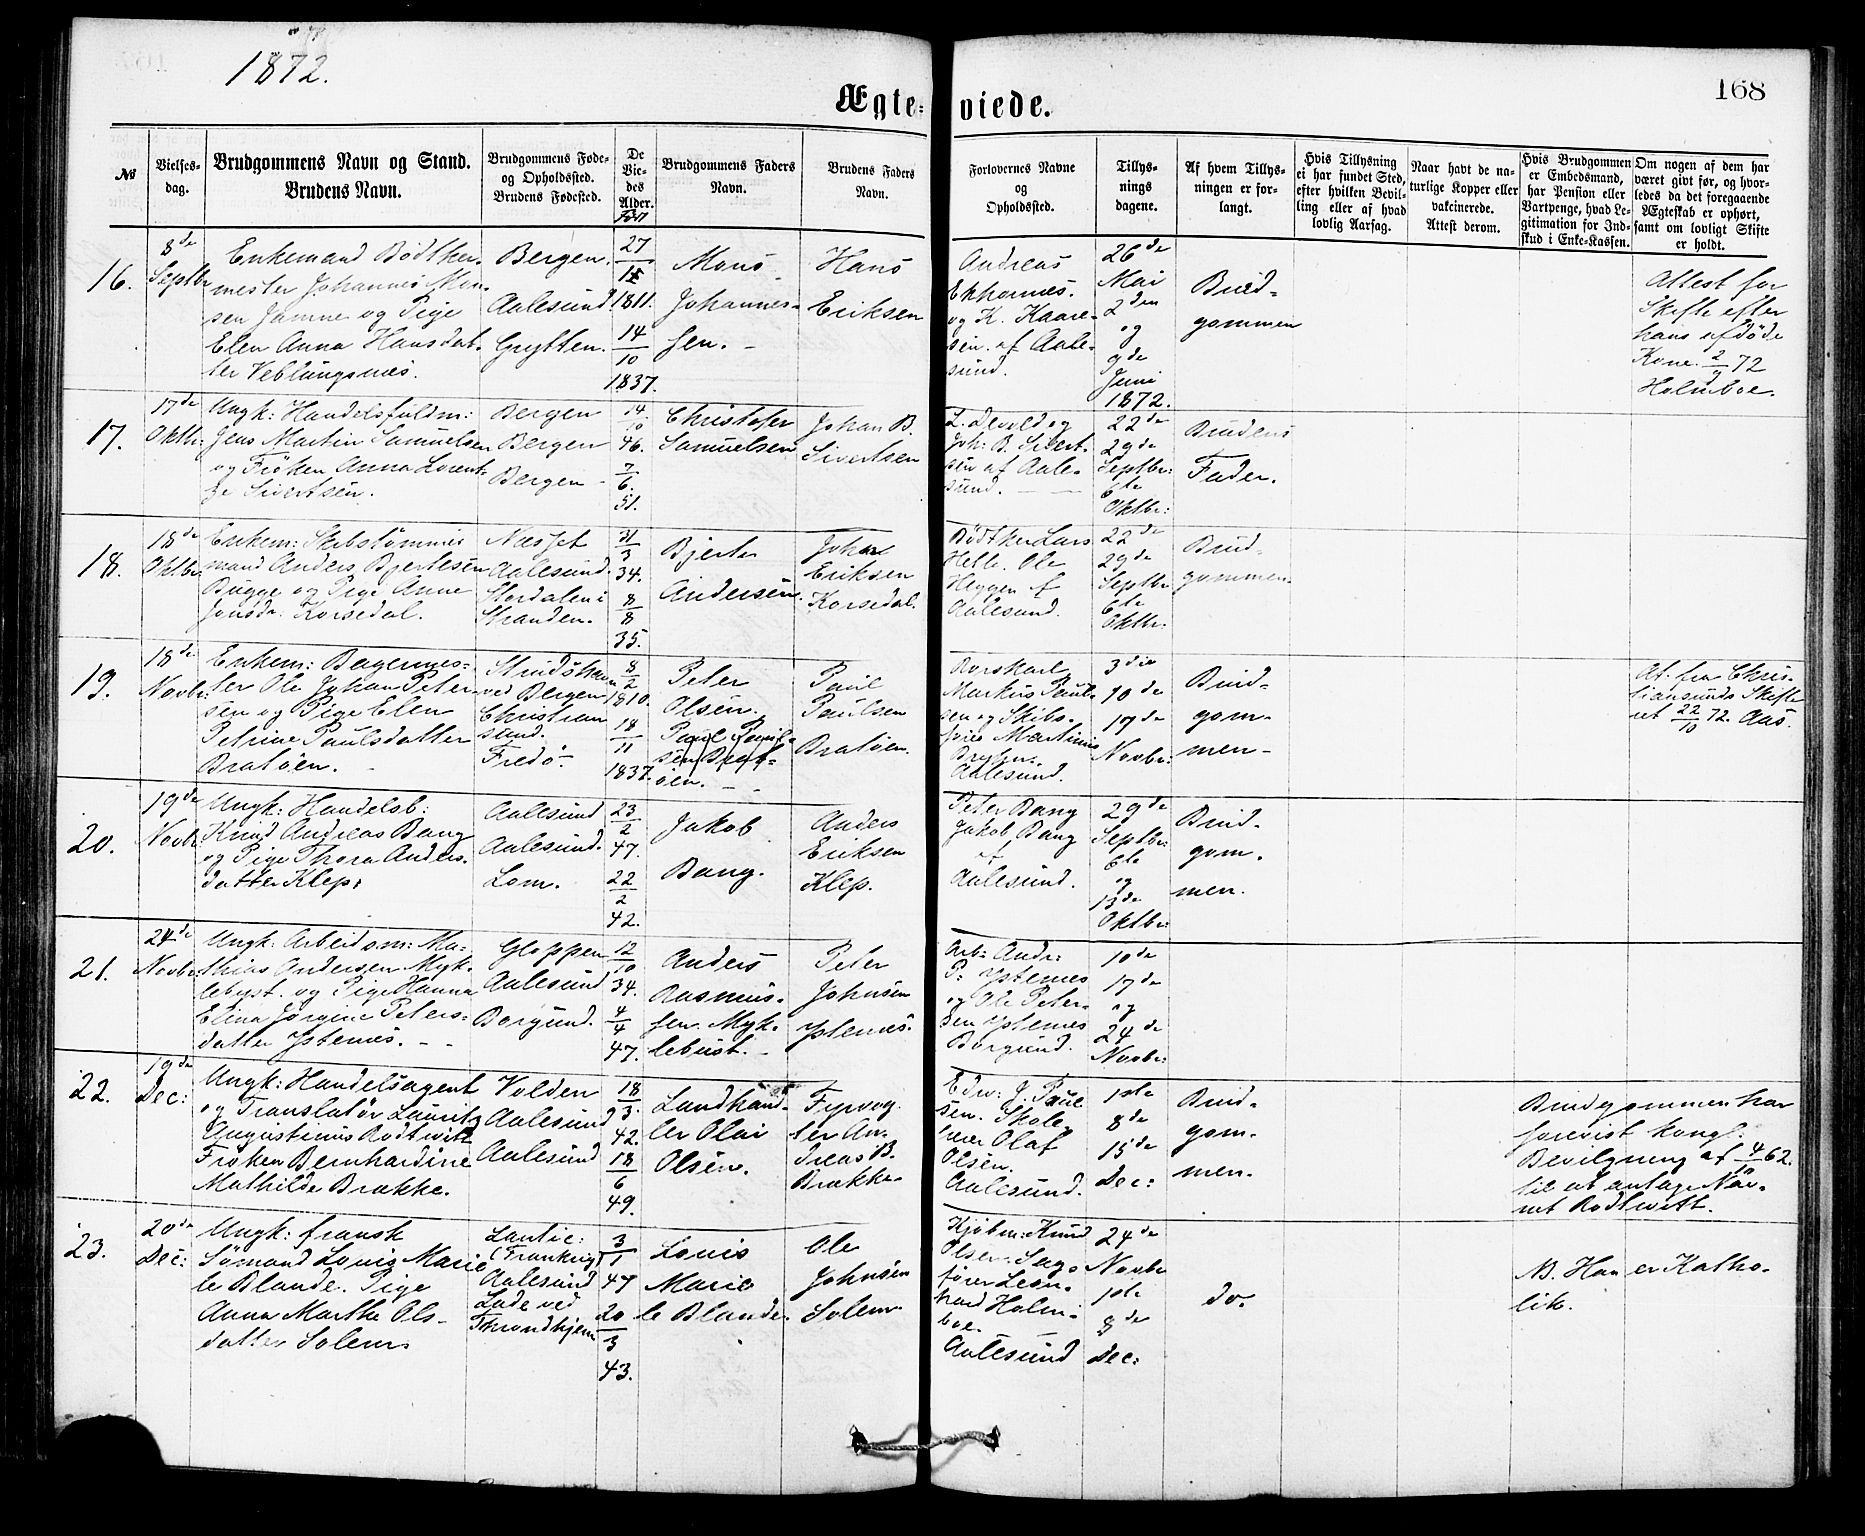 1872.
168
Ægte-viede.
№
Vielses-
dag.
Brudgommens Navn og Stand.
Brudens Navn.
Brudgommens Føde-
og Opholdssted.
Brudens Fødested.
De
Vie-
des
Alder.
Brudgommens Faders
Navn.
Brudens Faders
Navn.
Forlovernes Navne
og
Opholdssted.
Tillys-
nings
dagene.
Af hvem Tillys-
ningen er for-
langt.
Hvis Tillysning
ei har fundet Sted,
efter hvilken Bevil-
ling eller af hvad
lovlig Aarsag.
Naar havt de na-
turlige Kopper eller
vakcinerede.
Attest derom.
Hvis Brudgommen
er Embedsmand,
har Pension eller
Vartpenge, hvad Le-
gitimation for Ind-
skud i Enke-Kassen.
Om nogen af dem har
været givt før, og hvor-
ledes da det foregaaende
Ægteskab er ophørt,
samt om lovligt Skifte
er holdt.
16.
8de
Septbr
Enkemand Bødtker-
mester Johannes Mon-
sen Jamne og Pige
Elen Anna Hansdat-
ter Veblungsnæs.
Bergen.
Aalesund
Grytten.
27
1811.
14
10
1837.
Mons
Johannes-
sen. -
Hans
Eriksen
Andreas
Ekhornæs.
og K. Kaare-
sen. af Aale-
sund.
26de
Mai
2den
og
9de
Juni
1872.
Brud-
gommen
Attest for
Skifte efter
hans afdøde
Kone. 2/9 72
Holmboe.
17.
17de
Oktbr:
Ungk: Handelsfuldm:
Jens Martin Samuelsen
og Frøken Anna Lorent-
ze Sivertsen.
Bergen
Bergen
Bergen -
14
10
46.
7
6.
51.
Christofer
Samuelsen
Johan B.
Sivertsen
L. Devold og
Joh: B. Sivert-
sen af Aale-
sund. - -
22de
29de
Septbr:
6te
Oktbr:
Brudens
Fader.
18.
18de
Oktbr.
Enkem: Skibstømmer
mand Anders Bjertesen
Bugge og Pige Anne
Jonsdr. Korsedal.
Næsset
Aalesund.
Stordalen i
Stranden.
21
3
34.
8
8
35.
Bjerte
Andersen.
John
Eriksen
Korsedal.
Bødtker Lars
Helle. Ole
Heggen af
Aalesund.
22de
29de
Septbr.
6te
Oktbr.
Brud-
gommen.
19.
18de
Novbr:
Enkem: Bagermes-
ter Ole Johan Peter-
sen og Pige Elen
Petrine Paulsdatter
Bratøen. -
ved Bergen
Christian
sund.
Fredø-
8
2
1810.
18
11
1837.
Peter
Olsen.
Paul Paul-
sen Brat-
øen. -
Paul
Paulsen
Bratøen.
Markus Paul-
sen og Skibs-
Martinus
Aalesund.
3die
10de
17de
Novbr:
Brud-
gom-
men-
At. fra Chris-
tiansunds Skifte
ret 22/10 72. Aas.
20.
19de
Novbr.
Ungk: Handelsb:
Knud Andreas Bang
og Pige Thora Anders-
datter Klep:
Aalesund
Aalesund.
Lom.
23
2
47.
22
2
42.
Jakob
Bang.
Anders
Eriksen
Klep.
Peter Bang
Jakob Bang
af
Aalesund.
29de
Septbr:
6te
og
13de
Oktbr:
Brud-
gom-
men.
21.
24de
Novbr:
Ungk: Arbeidsm: Ma-
thias Andersen Myk-
lebyst. og Pige Hanna
Elina Jørgine Peters-
datter Ystenes. - -
Gloppen
Aalesund
Borgund.
12
10
34.
4
4
47.
Anders
Rasmus-
sen. Myk-
lebust. -
Peter
Johnsen
Ystenes.
Arb: Andr:
P: Ystenes
og Ole Peter-
sen Ystenes
Borgund.
10de
17de
og
24de
Novbr:
22.
19de
Dec:
Ungk: Handelsagent
og Translatør Lauritz
Augustinus Rødtwitt
Frøken Bernhardine
Mathilde Brække.
Volden
Aalesund
Aalesund
18
3.
42.
18
6
49.
Landhand-
ler Olai
Olsen.
Fyrvog-
ter An-
dreas B.
Brække.
Edw: J. Poul
sen. Skole-
lærer Olaf
Olsen.
Aalesund.
1ste
8de
15de
Dec:
Brud-
gom-
men.
Brudgommen har
forevist kongl:
Bevilgning af 4 62.
til at antage Nav-
net Rødtwitt.
23.
20de
Dec:
Ungk: fransk
Sømand Louis Marie
le Blande. Pige
Anna Marthe Ols-
datter Solem.
Lantic:
(Frankrig)
Aalesund
Lade ved
Throndhjem
3
1
47
20
3
43.
Louis
Marie
le Blande.
Ole
Johnsen
Solem.
Kjøbm: Knud
Olsen. Sag-
fører Leon-
hard Holm-
boe. -
Aalesund
24de
Novbr
1ste
8de
Dec:
do.
NB. Han er Katho-
lik.